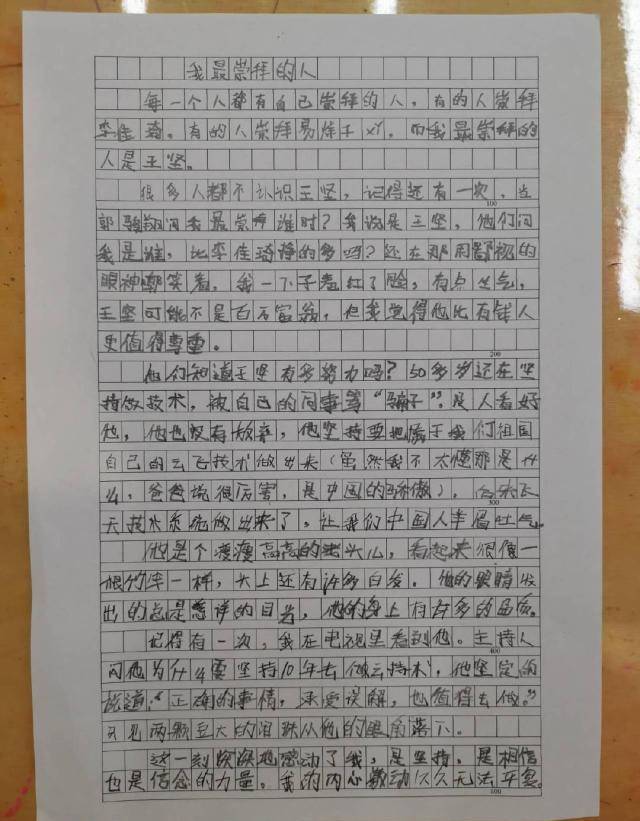 我最崇拜的人
每一个人都有自己崇拜的人。有的人崇拜
李佳琦。有的人崇拜易烊千xi。而我最崇拜的
人是王坚。
很多人都不认识王坚，记得还有一次，当
郭骏翔问我最崇拜谁时？我说是王坚，他们问
我是谁，比李佳琦挣的多吗？还在那用鄙视的
眼神嘲笑着，我一下子羞红了脸，有点生气，
王坚可能不是百万富翁，但我觉得他比有钱人
更值得尊重。
他们知道王坚有多努力吗？50多岁还在坚
持做技术，被自己的同事骂“骗子”。是人看好
他，他也没有放弃，他坚持要把属于我们祖国
自己的云飞技术做出来（虽然我不太懂那是什
么，爸爸说很厉害，是中国的骄傲）。
天技术系统做出来了，让我们中国人羊眉吐气
他是个瘦瘦高高的老头儿，看起来很像一
根竹竿一样，头上还有许多白发。他的眼睛发
出的总是慈详的目光，他的身上有许多的品质。
记得有一次，我在电视里看到他。主持人
问他为什么要坚持10年去做云技术，他坚定的
说道：“正确的事情，承受误解，也值得去做。”
只见两颗豆大的泪珠从他的眼角落下。
这一刻深深地感动了我，是坚持，是相信
也是信念的力量。我的内心激动久久无法平复。
100
200
300
400
500